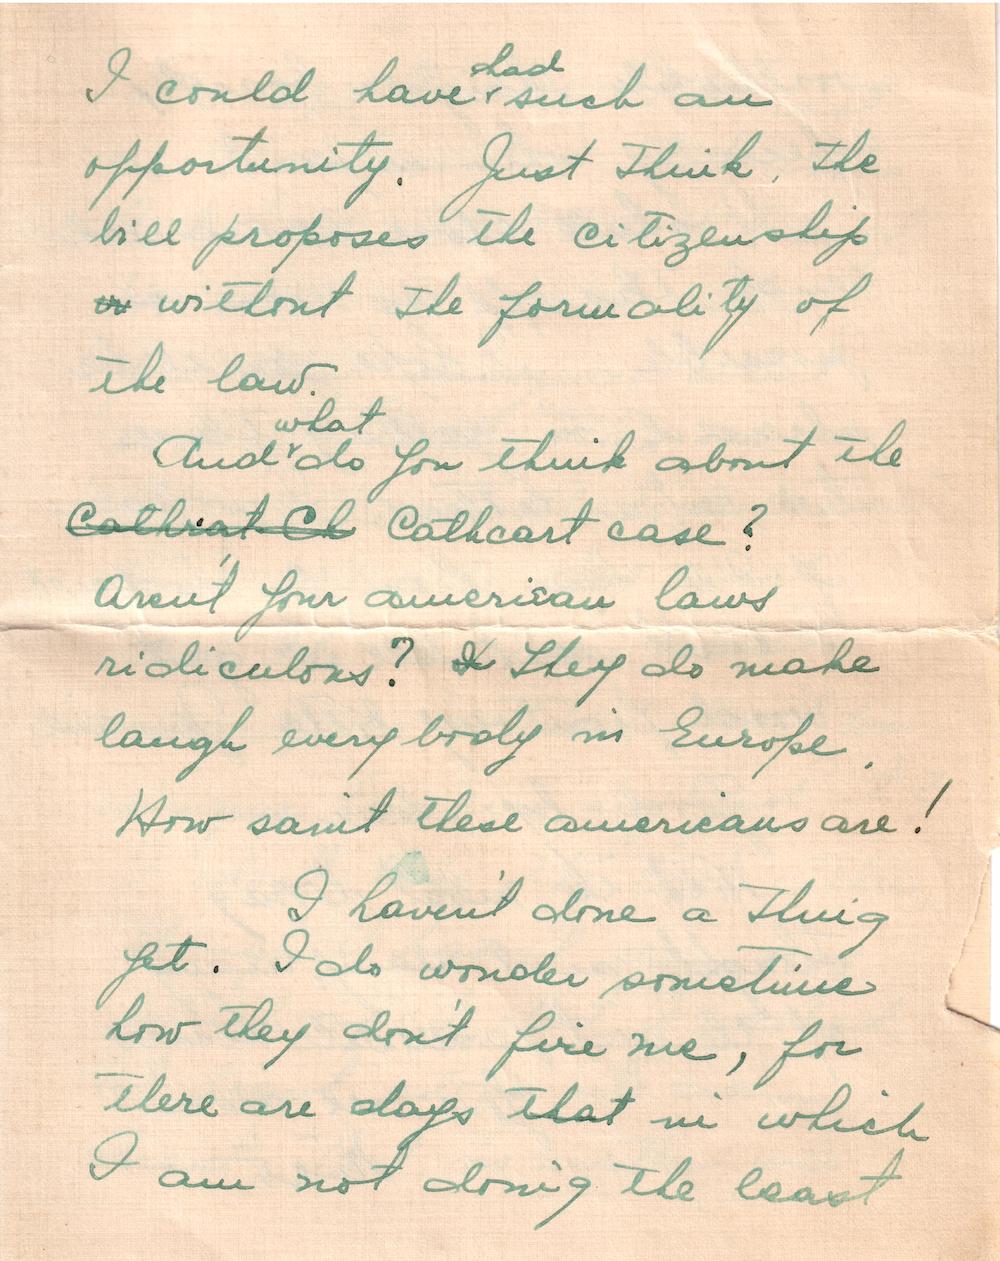 I could have had such an
opportunity. Just think, the
bill proposes the citizenship
without the formality of
the law.
And what do you think about the
Cathrat Ch Cathcart case?
Aren't your american laws
ridiculous? They do make
laugh everybody in Europe.
How saint these americans are!
I haven't done a thing
yet. I do wonder sometime
how they don't fire me, for
there are days that in which
I am not doing the least